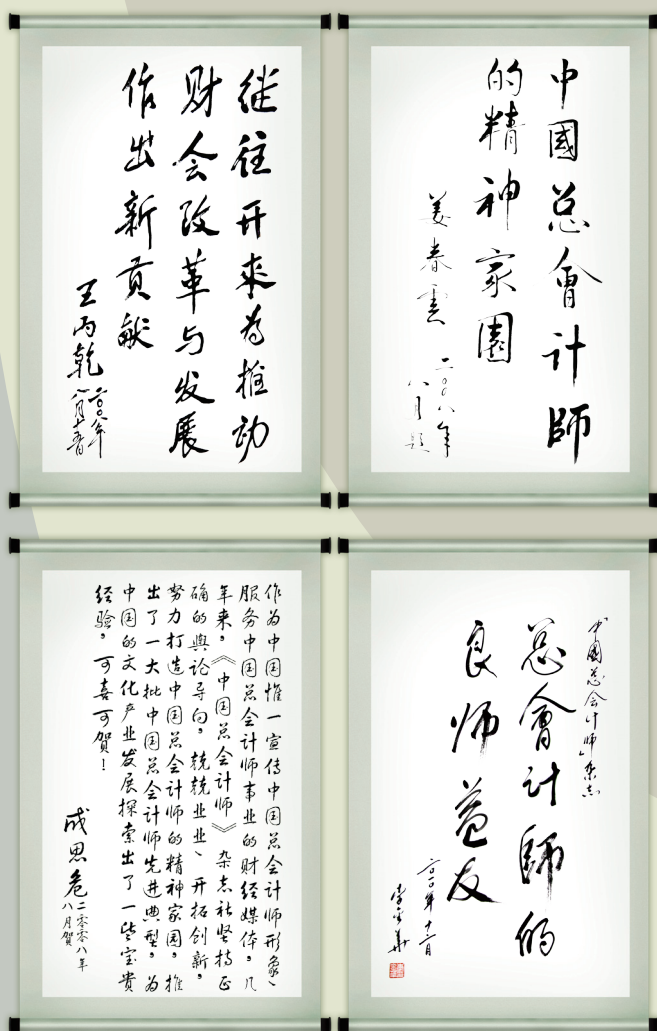 继往开来为推动
财会改革与发展
作出新贡献
王丙乾
二〇〇八年
中國总會计師
的精神家園
姜春雲
二〇〇八年
八月题
作为中国惟一宣传中国总会计师形象、
服务中国总会计师事业的财经媒体，几
年来，《中国总会计师》杂志社坚持正
确的舆论导向，兢兢业业、开拓创新，
努力打造中国总会计师的精神家园，推
出了一大批中国总会计师先进典型，为
中国的文化产业发展探索出了一些宝贵
经验，可喜可贺！
成思危
二零零八年
八月贺
《中國总会计师》杂志
总會计師的
良师益友
李金华